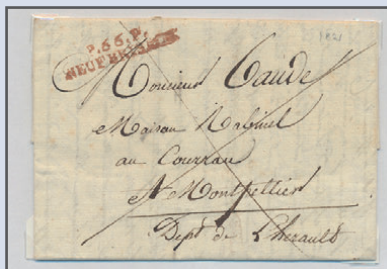 P.66.P.
NEUF BRISACH
1821
Monsieur Caude
Maison
au Courrau
A Montpellier
Dept de Lherault